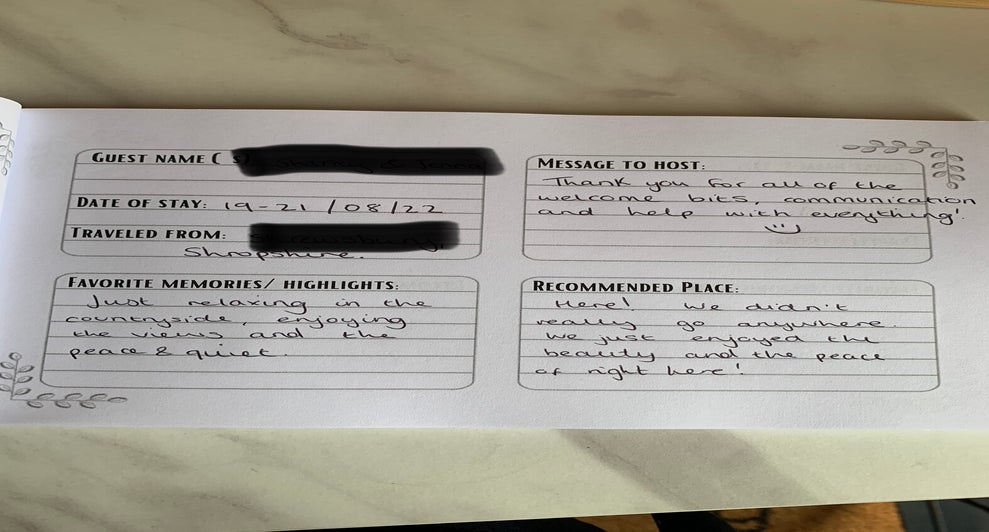 GUEST NAME (S)
DATE OF STAY: 19-21/08/22
TRAVELED FROM:
Shropshire.
FAVORITE MEMORIES/ HIGHLIGHTS:
Just relaxing in the
countryside, enjoying
the views and the
peace & quiet.
MESSAGE TO HOST:
Thank you for all of the
welcome bits, communication
and help with everything!
RECOMMENDED PLACE:
Here! We didn't
really go anywhere.
We just enjoyed the
beauty and the peace
of right here!